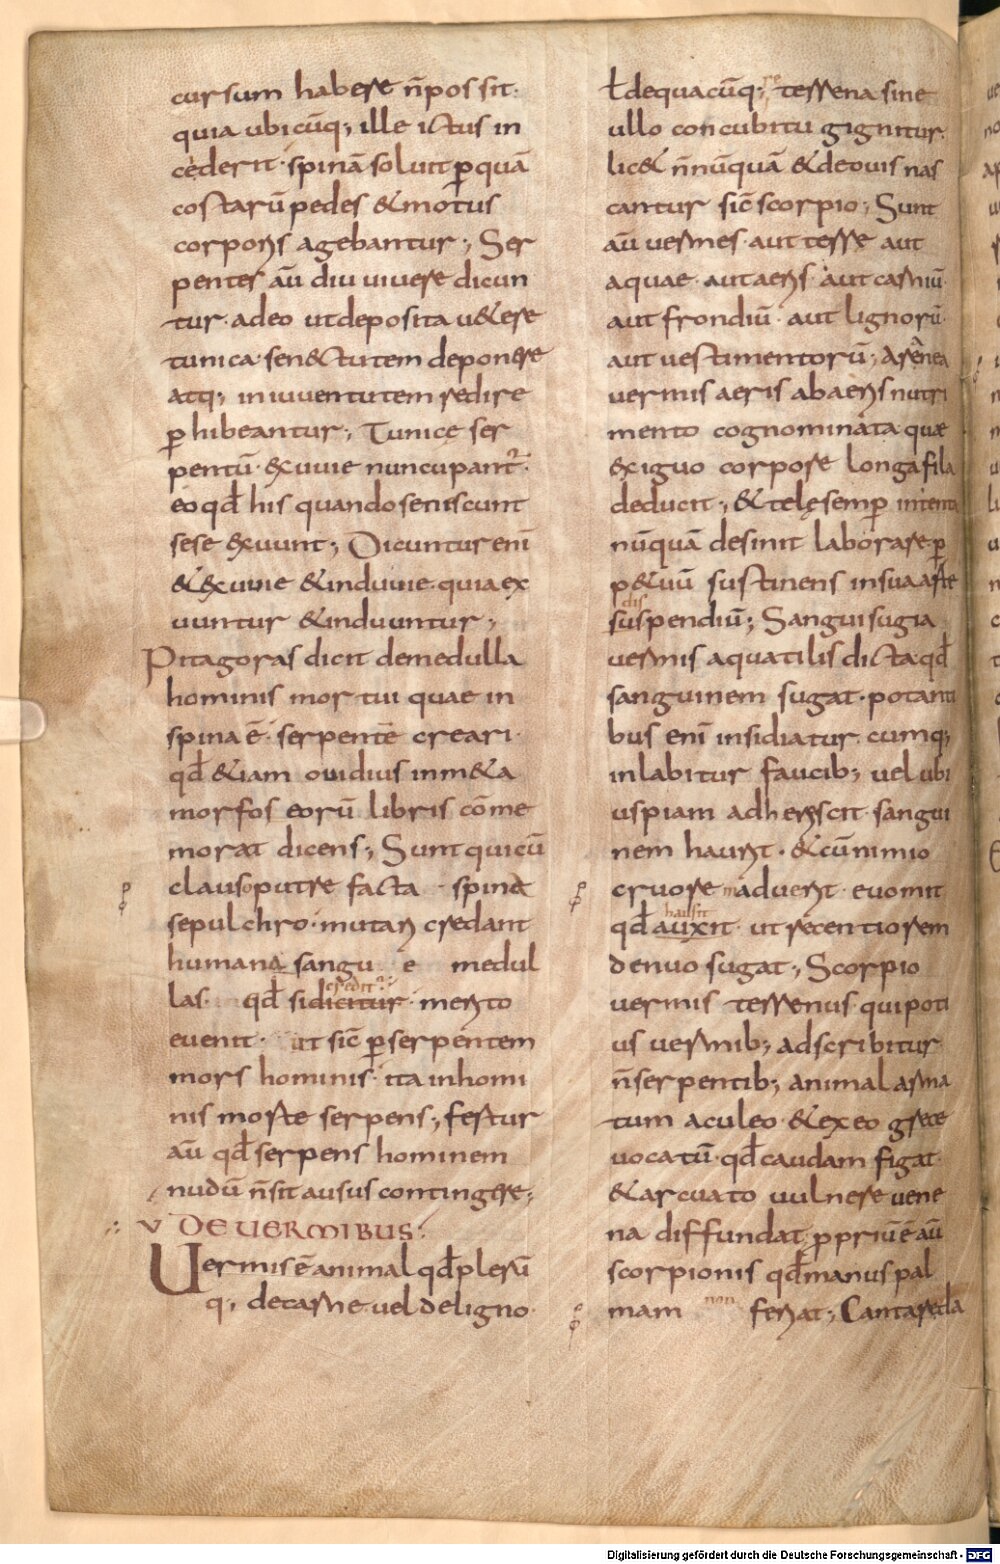 cursum habere n̄ possit·
quia ubicūq; ille ictus in
cederit· spinā soluit ꝑ quā
costarū pedes & motus
corporis agebantur; Ser
pentes aū diu uiuere dicun
tur· adeo ut deposita u&ere
tunica· sen&utem deponere
atq; in iuuentutem redire
ꝑhibeantur; Tunicę ser
pentū· exuuie nuncupant᷑·
eo qđ his quando seniscunt
sese exuunt; Dicuntur enī
& exuuie & induuie· quia ex
uuntur & induuntur;
Pitagoras dicit de medulla
hominis mortui quae in
spina ē· serpentē creari·
qđ &iam ouidius in m&a
morfos eorū libris cōme
morat dicens; Sunt qui cū
clauso putre facta spina
sepulchro· mutari credant
humana sangu e medul
las· qđ si dicitur creditᷣ· merito
euenit· ut sic̄ ꝑ serpentem
mors hominis· ita in homi
nis morte serpens; fertur
aū qđ serpens hominem
nudū n̄ sit ausus contingere;
V DE UERMIBUS·
Uermis ē animal qđ plerū
q; de carne uel de ligno·
ł de quacūq; re terrena sine
ullo concubitu gignitur·
lic& n̄nūquā & de ouis nas
cantur sic̄ scorpio; Sunt
aū uermes· aut terre aut
aquae· aut aeris· aut carniū·
aut frondiū· aut lignorū·
aut uestimentorū; Aranea
uermis aeris ab aeris nutri
mento cognominata· quae
exiguo corpore longa fila
deducit; & telę semꝑ intenta
nūquā desinit laborare ꝑ
p&uū sustinens in sua arte
dis
suspendiū; Sanguisugia
uermis aquatilis dicta qđ
sanguinem sugat· potanti
bus enī insidiatur· cumq;
inlabitur faucib; uel ubi
uspiam adherescit· sangui
nem haurit· & cū nimio
cruore maduerit· euomit
hausit
qđ auxit· ut recentiorem
denuo sugat; Scorpio
uermis terrenus· qui poti
us uermib; adscribitur
n̄ serpentib; animal arma
tum aculeo· & ex eo grece
uocatū· qđ caudam figat·
& arcuato uulnere uene
na diffundat· ꝓpriū ē aū
scorpionis qđ manus pal
mam non feriat; Cantarida